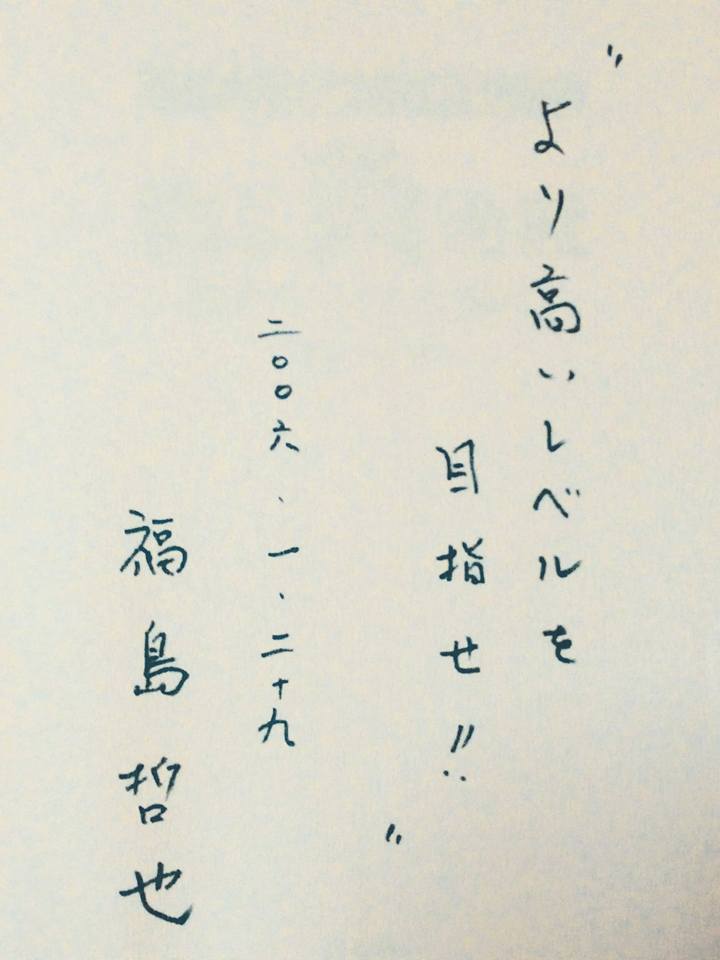 〃より高いレベルを
目指せ!!〃
二〇〇六.一.二十九
福島哲也